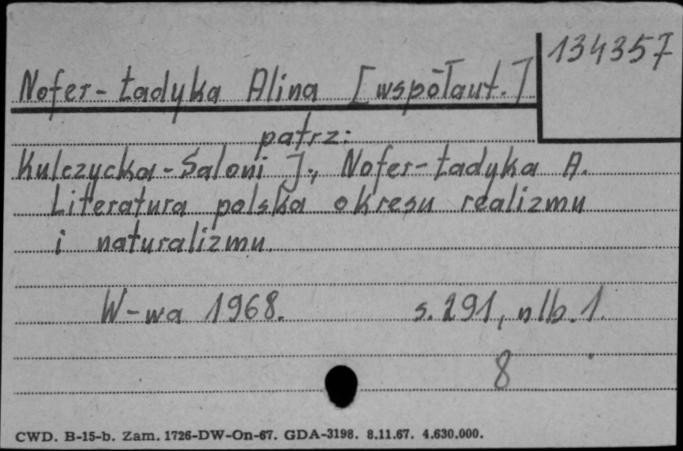 134357
Nofer-Ładyka Alina [współaut.]
patrz:
Kulczycka-Saloni J., Nofer-Ładyka A.
Literatura polska okresu realizmu
i naturalizmu.
W-wa 1968. s. 291, nlb. 1.
8
CWD. B-15-b. Zam. 1726-DW-On-67. GDA-3198. 8.11.67. 4.630.000.